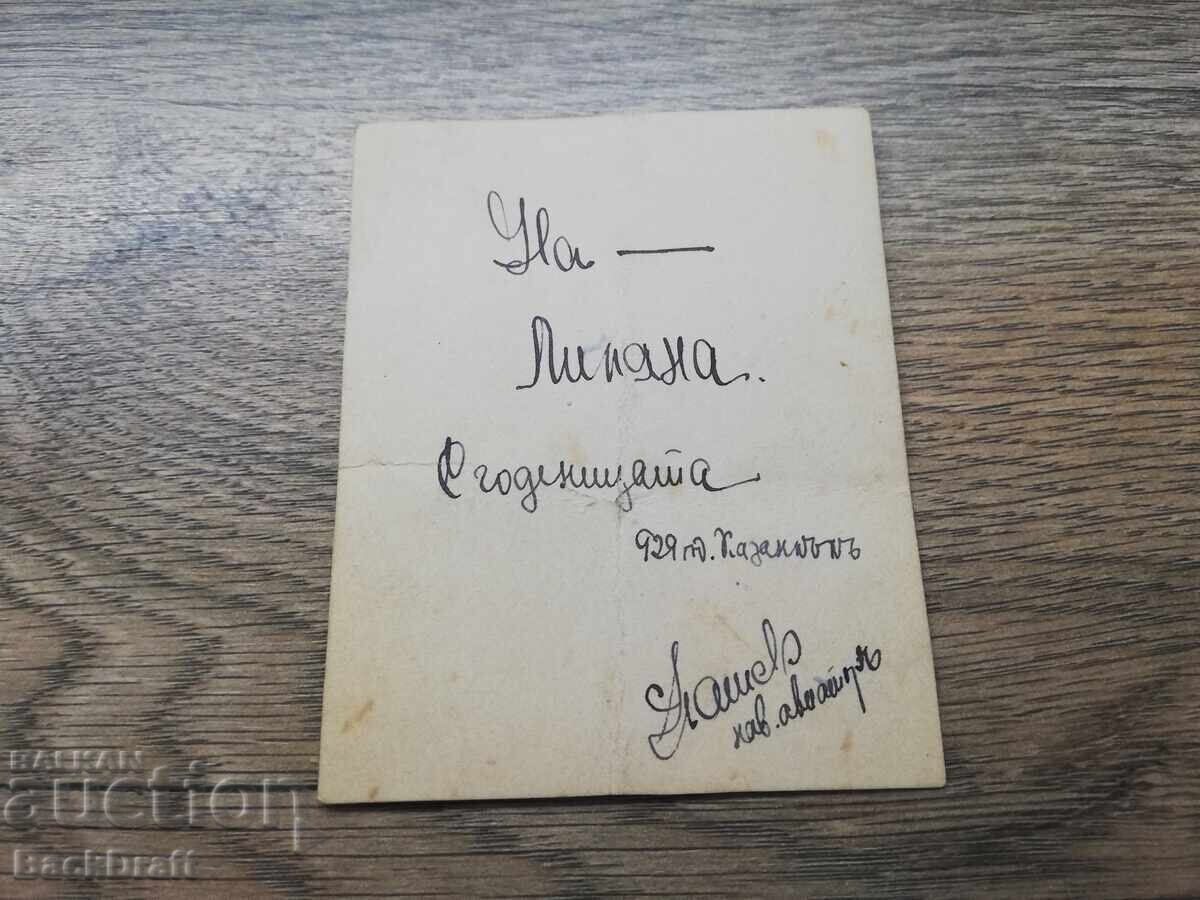 На —
Лиляна.
Сгоденицата
929 г. Казанлъкъ
кав. авиаторъ
BALKAN
auction
BackDraft